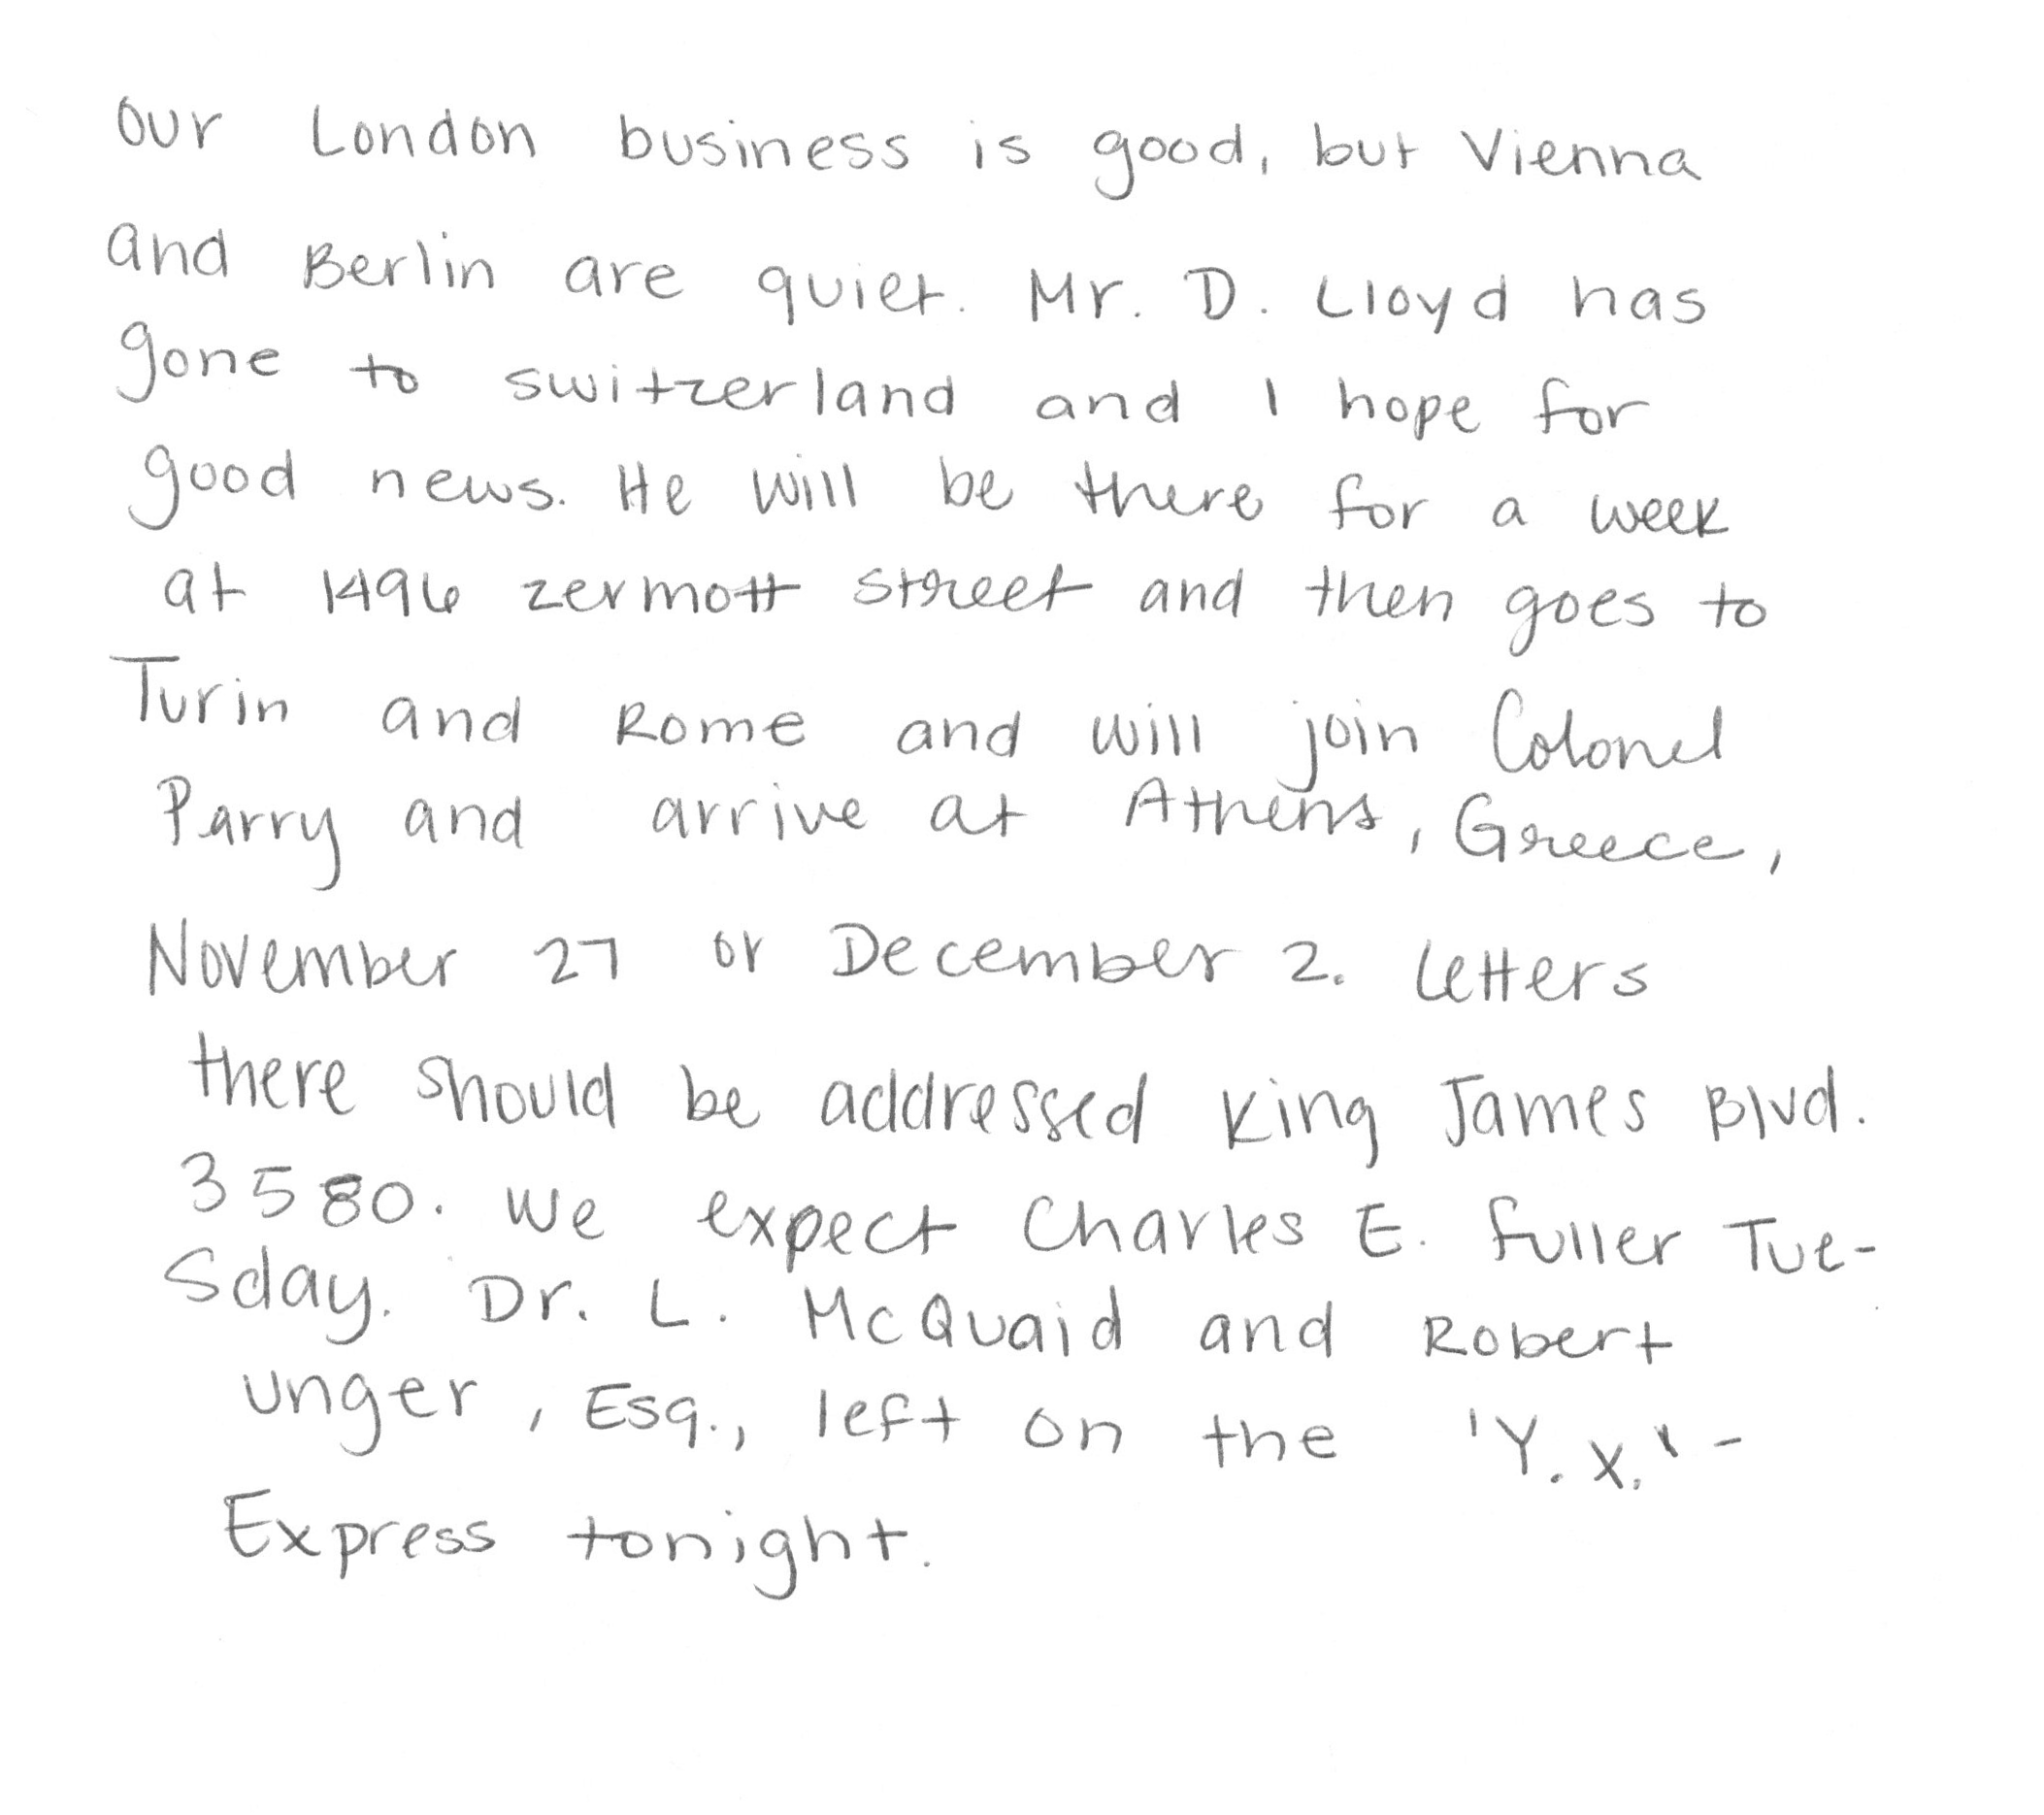 our London business is good, but Vienna
and Berlin are quiet. Mr. D. Lloyd has
gone to switzerland and I hope for
good news. He will be there for a week
at 1496 zermott street and then goes to
Turin and Rome and will join Colonel
Parry and arrive at Athens, Greece,
November 27 or December 2. Letters
there should be addressed King James Blvd.
3580. We expect Charles E. fuller Tue-
sday. Dr. L. McQuaid and Robert
unger, Esq., left on the 'Y.X.'-
Express tonight.